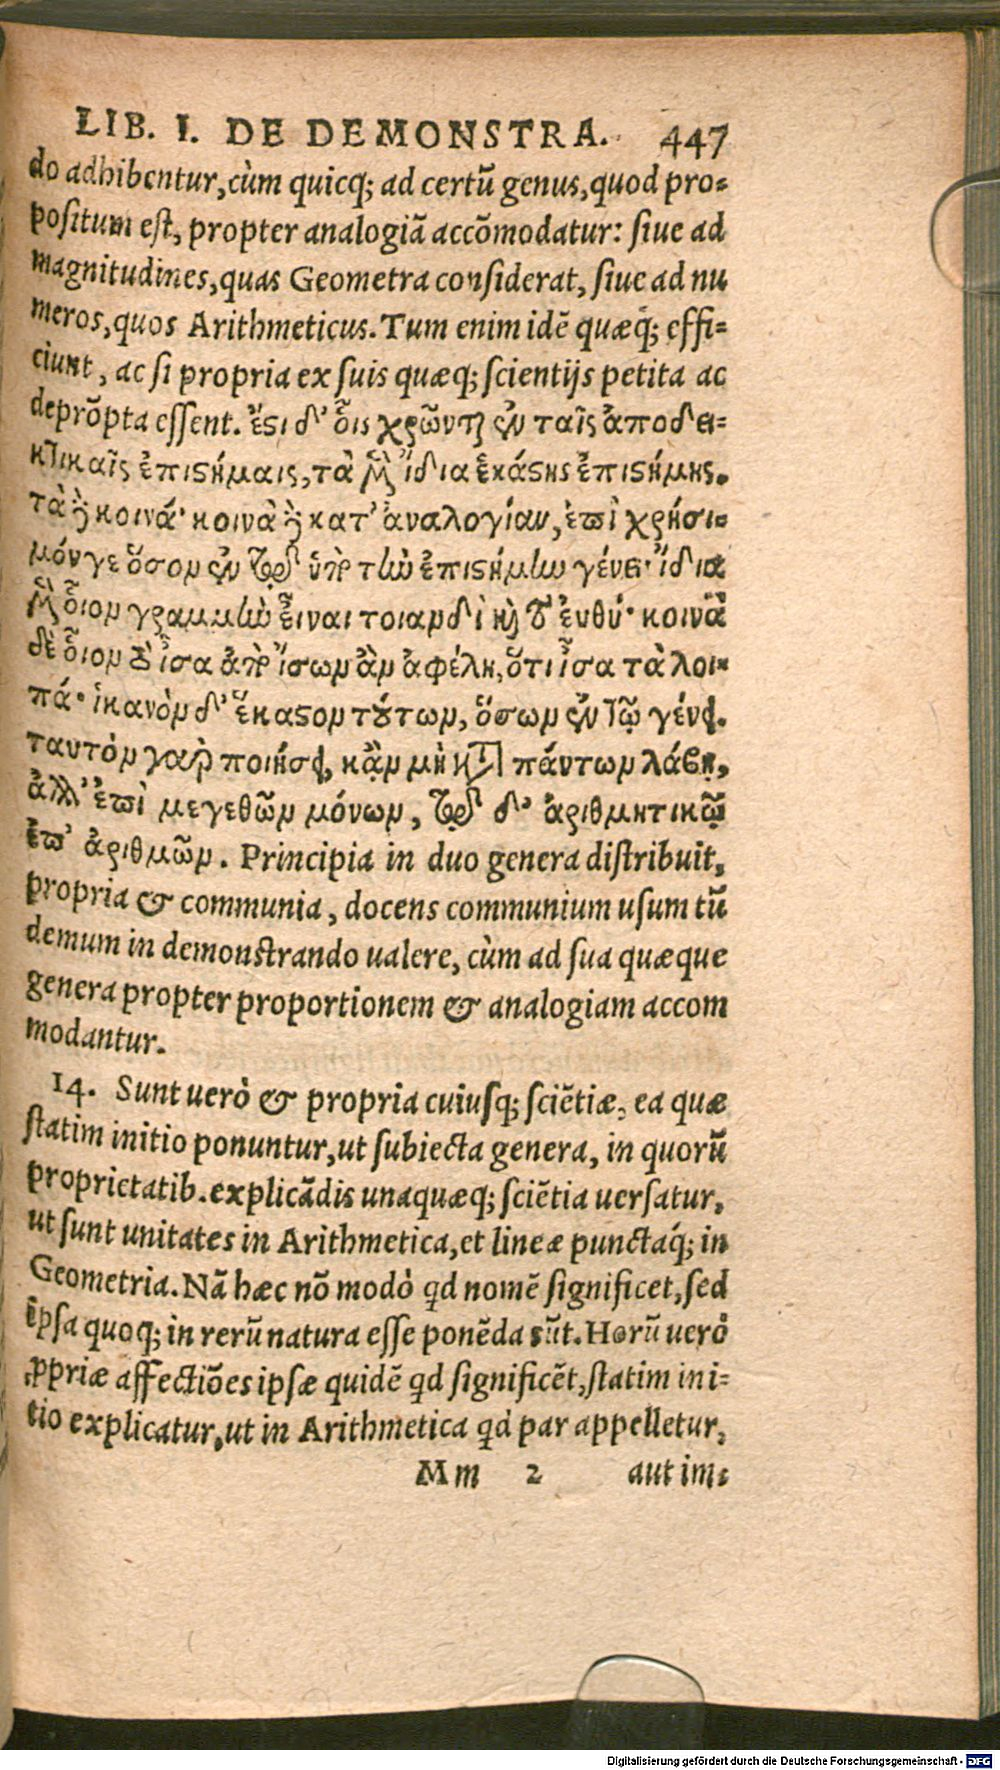 LIB. I. DE DEMONSTRA. 447
do adhibentur, cùm quicq; ad certũ genus, quod pro-
positum est, propter analogiã accõmodatur: siue ad
magnitudines, quas Geometra considerat, siue ad nu
meros, quos Arithmeticus. Tum enim idẽ quæq́; effi-
ciunt, ac si propria ex suis quæq; scientijs petita ac
deprõpta essent. ἔϛι δ' ὧν χρῶνται ἐν ταῖς ἀποδει-
κτικαῖς ἐπιϛήμαις, τὰ μὲν ἴδια ἑκάϛης ἐπιϛήμης.
τὰ δὲ κοινά· κοινὰ δὲ κατ' ἀναλογίαν, ἐπὶ χρήσι-
μόν γε ὅσον ἐν τῷ ὑπὸ τὴν ἐπιϛήμην γένει· ἴδια
μὲν οἷον γραμμὴν εἶναι τοιανδὶ καὶ τὸ ἐυθύ· κοινὰ
δὲ οἷον τὸ ἴσα ἀπὸ ἴσων ἂν ἀφέλη, ὅτι ἴσα τὰ λοι-
πά· ἱκανὸν δ' ἕκαϛον τȣ́των, ὅσων ἐν τῷ γένει.
ταυτὸν γὰρ ποιήσει, κἂν μὴ κατὰ πάντων λάβῃ,
ἀλλ' ἐπὶ μεγεθῶν μόνων, τῷ δ' ἀριθμητικῷ
ἐπ' ἀριθμῶν. Principia in duo genera distribuit,
propria & communia, docens communium usum tũ
demum in demonstrando ualere, cùm ad sua quæque
genera propter proportionem & analogiam accom
modantur.
14. Sunt uerò & propria cuiusq; sciẽtiæ, ea quæ
statim initio ponuntur, ut subiecta genera, in quorũ
proprietatib. explicãdis unaquæq; sciẽtia uersatur,
ut sunt unitates in Arithmetica, et lineæ punctaq́; in
Geometria. Nã hæc nõ modò qd nomẽ significet, sed
ipsa quoq; in rerũ natura esse ponẽda sũt. Horũ uerò
ꝓpriæ affectiões ipsæ quidẽ qd significẽt, statim ini-
tio explicatur, ut in Arithmetica qd par appelletur,
Mm 2 aut im-
Digitalisierung gefördert durch die Deutsche Forschungsgemeinschaft - DFG